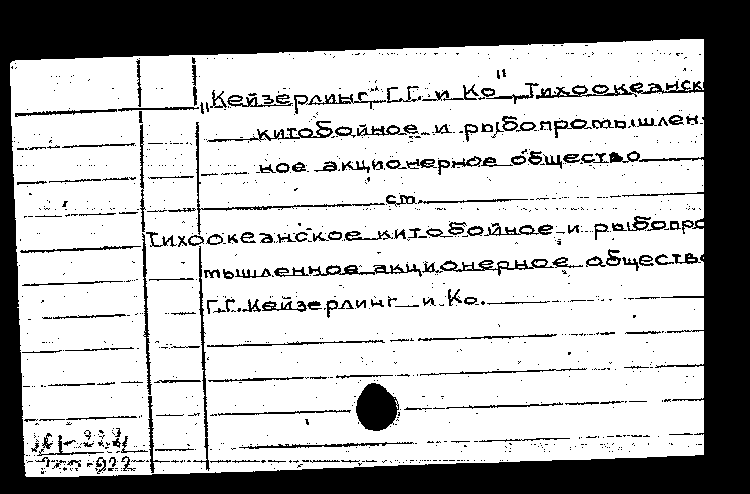 „Кейзерлинг, Г.Г. и Ко", Тихоокеанск
китобойное и рыбопромышлен-
ное акционерное общество
ст.
Тихоокеанское китобойное и рыбопро
мышленное акционерное общество
Г.Г. Кейзерлинг и Ко.